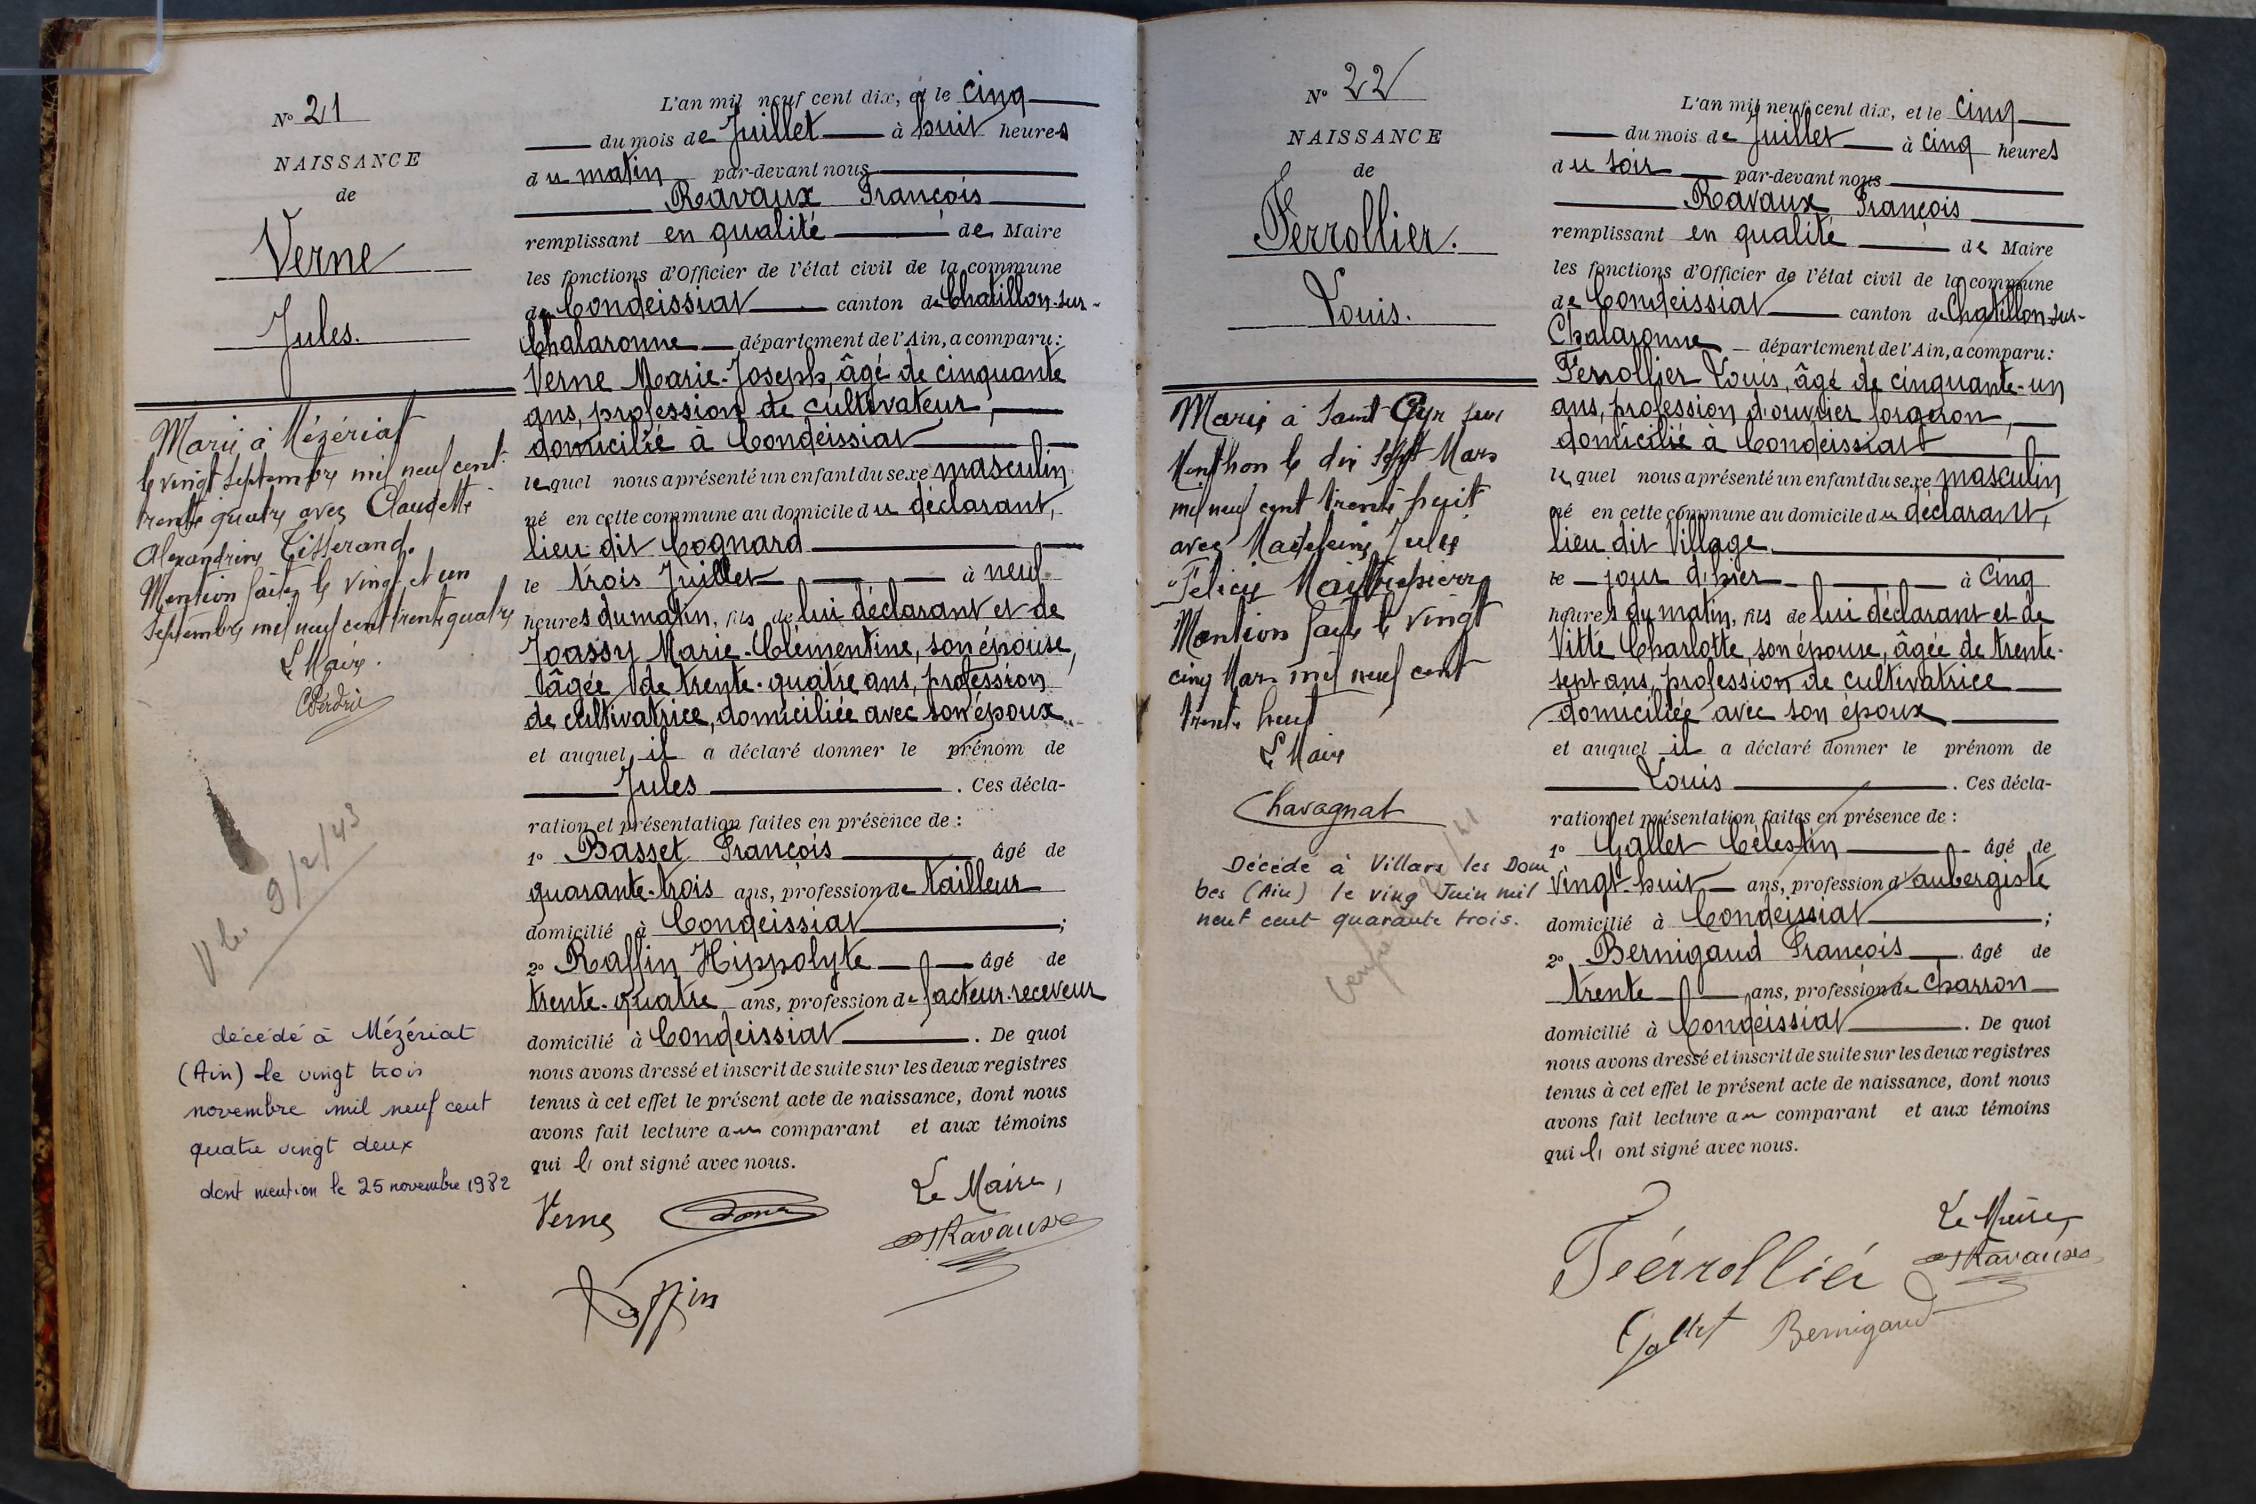 N° 21
NAISSANCE
de
Verne
Jules.
Marié à Mézériat
le vingt septembre mil neuf cent
trente quatre avec Claudette
Alexandrine Tisserand.
Mention faite le vingt et un
septembre mil neuf cent trente quatre
Le Maire.
V le 9/2/43
décédé à Mézériat
(Ain) le vingt trois
novembre mil neuf cent
quatre vingt deux
dont mention le 25 novembre 1982
L'an mil neuf cent dix, et le cinq
du mois de Juillet à huit heures
du matin par-devant nous
Ravaux François
remplissant en qualité de Maire
les fonctions d'Officier de l'état civil de la commune
de Condeissiat canton de Chatillon-sur-
Chalaronne département de l'Ain, a comparu :
Verne Marie-Joseph, âgé de cinquante
ans, profession de cultivateur,
domicilié à Condeissiat
lequel nous a présenté un enfant du sexe masculin
né en cette commune au domicile du déclarant,
lieu dit Cognard
le trois Juillet à neuf
heures du matin, fils de lui déclarant et de
Joassy Marie-Clémentine, son épouse,
âgée de trente-quatre ans, profession
de cultivatrice, domiciliée avec son époux
et auquel il a déclaré donner le prénom de
Jules . Ces décla-
ration et présentation faites en présence de :
1° Basset François âgé de
quarante-trois ans, profession de tailleur
domicilié à Condeissiat ;
2° Raffin Hippolyte âgé de
trente-quatre ans, profession de facteur-receveur
domicilié à Condeissiat . De quoi
nous avons dressé et inscrit de suite sur les deux registres
tenus à cet effet le présent acte de naissance, dont nous
avons fait lecture au comparant et aux témoins
qui l'ont signé avec nous.
Verne
Le Maire,
Ravaux
Raffin
N° 22
NAISSANCE
de
Ferrollier.
Louis.
Marié à Saint Cyr sur
Menthon le dix sept Mars
mil neuf cent trente huit
avec Madeleine Julie
Félicie Maîtrepierre
Mention faite le vingt
cinq Mars mil neuf cent
trente huit
Le Maire
Chavagnat
Décédé à Villars les Dom
bes (Ain) le ving Juin mil
neuf cent quarante trois.
L'an mil neuf cent dix, et le cinq
du mois de Juillet à cinq heures
du soir par-devant nous
Ravaux François
remplissant en qualité de Maire
les fonctions d'Officier de l'état civil de la commune
de Condeissiat canton de Chatillon-sur-
Chalaronne département de l'Ain, a comparu :
Ferrollier Louis, âgé de cinquante-un
ans, profession d'ouvrier forgeron,
domicilié à Condeissiat
lequel nous a présenté un enfant du sexe masculin
né en cette commune au domicile du déclarant,
lieu dit Village
le jour d'hier à cinq
heures du matin, fils de lui déclarant et de
Vitte Charlotte, son épouse, âgée de trente-
sept ans, profession de cultivatrice
domiciliée avec son époux
et auquel il a déclaré donner le prénom de
Louis . Ces décla-
ration et présentation faites en présence de :
1° Gallet Célestin âgé de
vingt-huit ans, profession d'aubergiste
domicilié à Condeissiat ;
2° Bernigaud François âgé de
trente ans, profession de charron
domicilié à Condeissiat . De quoi
nous avons dressé et inscrit de suite sur les deux registres
tenus à cet effet le présent acte de naissance, dont nous
avons fait lecture au comparant et aux témoins
qui l'ont signé avec nous.
Le Maire,
Férrolliér Ravaux
Gallet Bernigaud